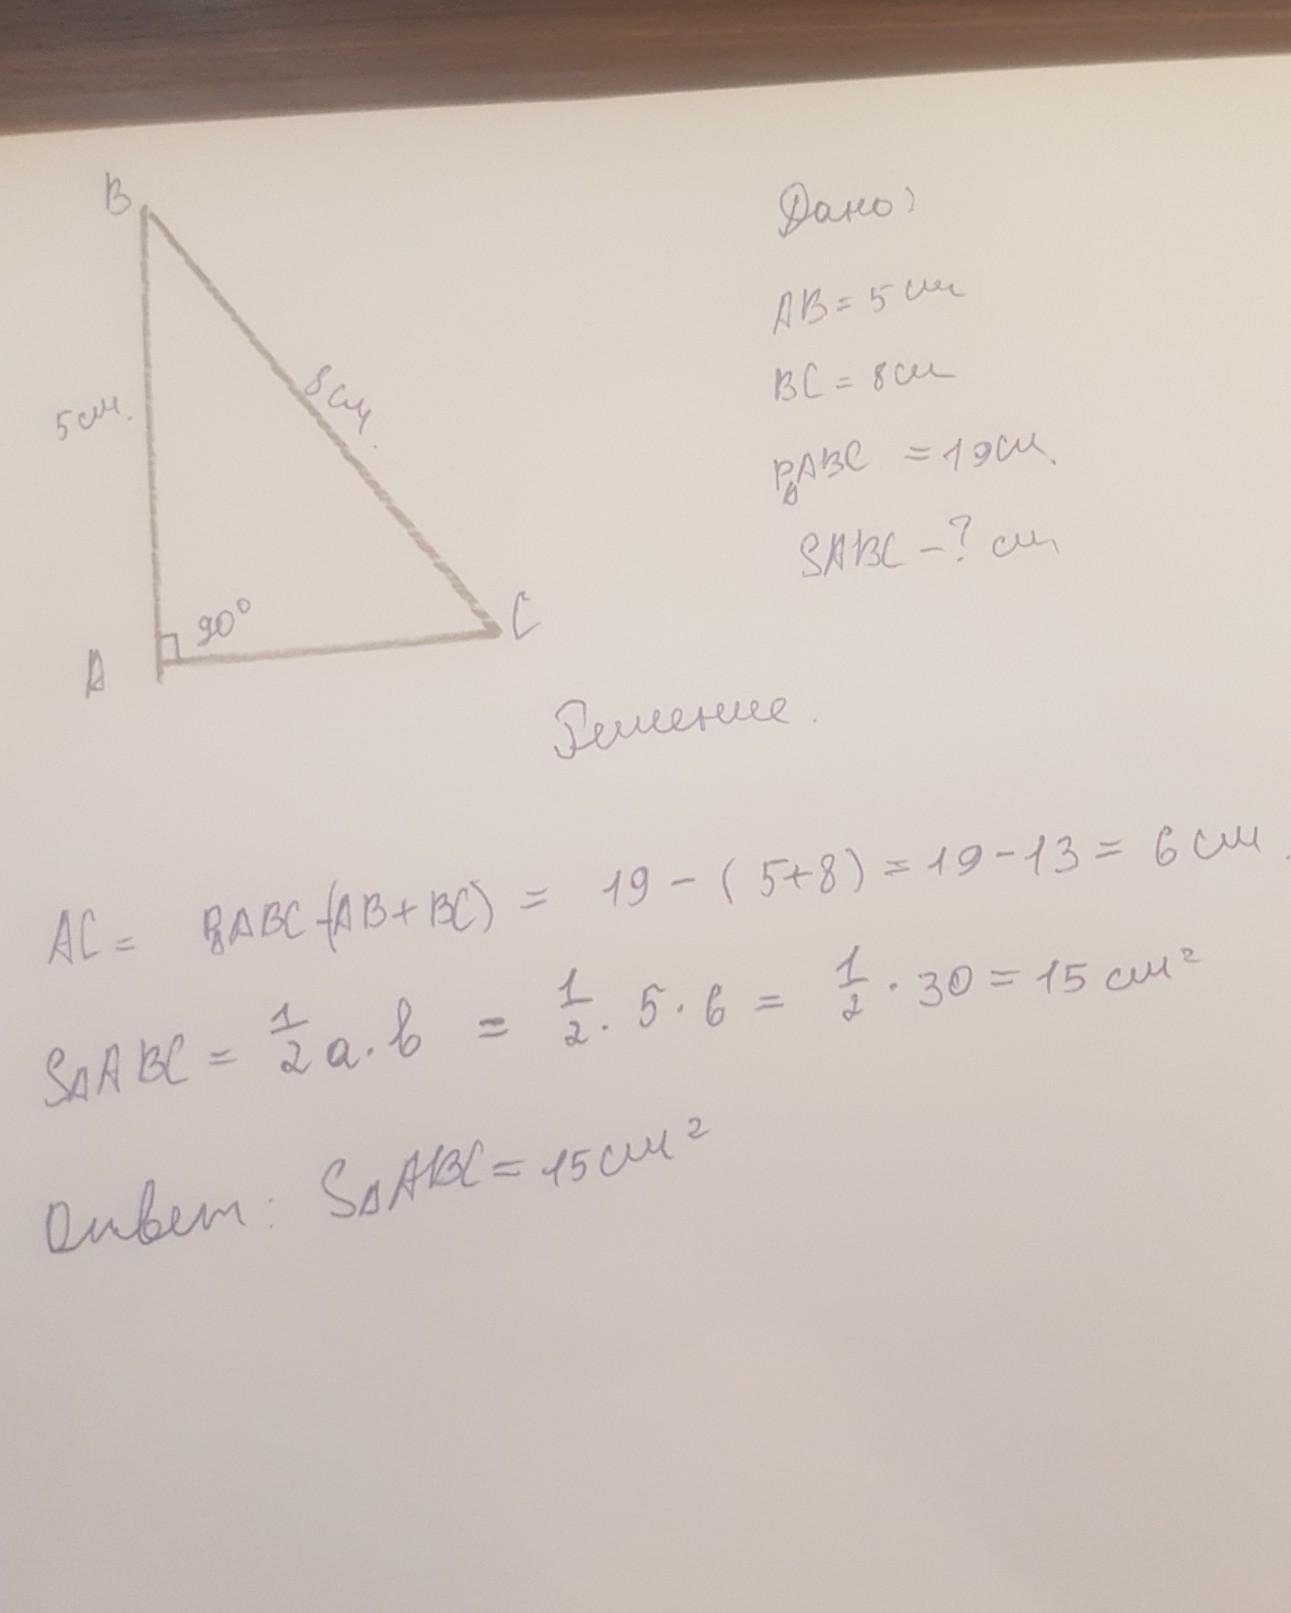 B
Дано:
AB = 5 см
8 см.
BC = 8 см
5 см.
P△ABC = 19 см.
SABC - ? см
90°
C
A
Решение.
AC = P△ABC-(AB+BC) = 19 - (5+8) = 19-13 = 6 см.
S△ABC = 1/2 a · b = 1/2 · 5 · 6 = 1/2 · 30 = 15 см²
Ответ: S△ABC = 15 см²